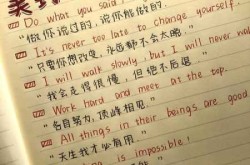 美
Do what you said,
"做你说过的,说你能做的"
It's never too late to change yourself.
"只要你想改变,永远都不会太晚"
I will walk slowly, but I will never walk
"我会走得很慢,但绝不后退"
Work hard and meet at the top.
"各自努力,顶峰相见"
All things in their beings are good
"天生我才必有用"
is impossible!